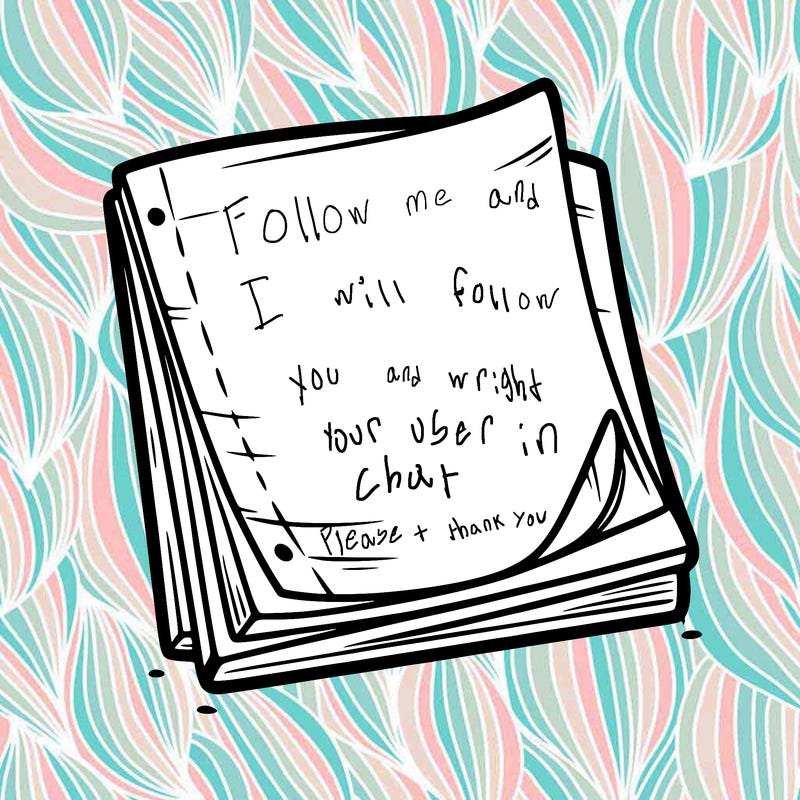 Follow me and
I will follow
you and wright
your user in
chat
Please + thank you